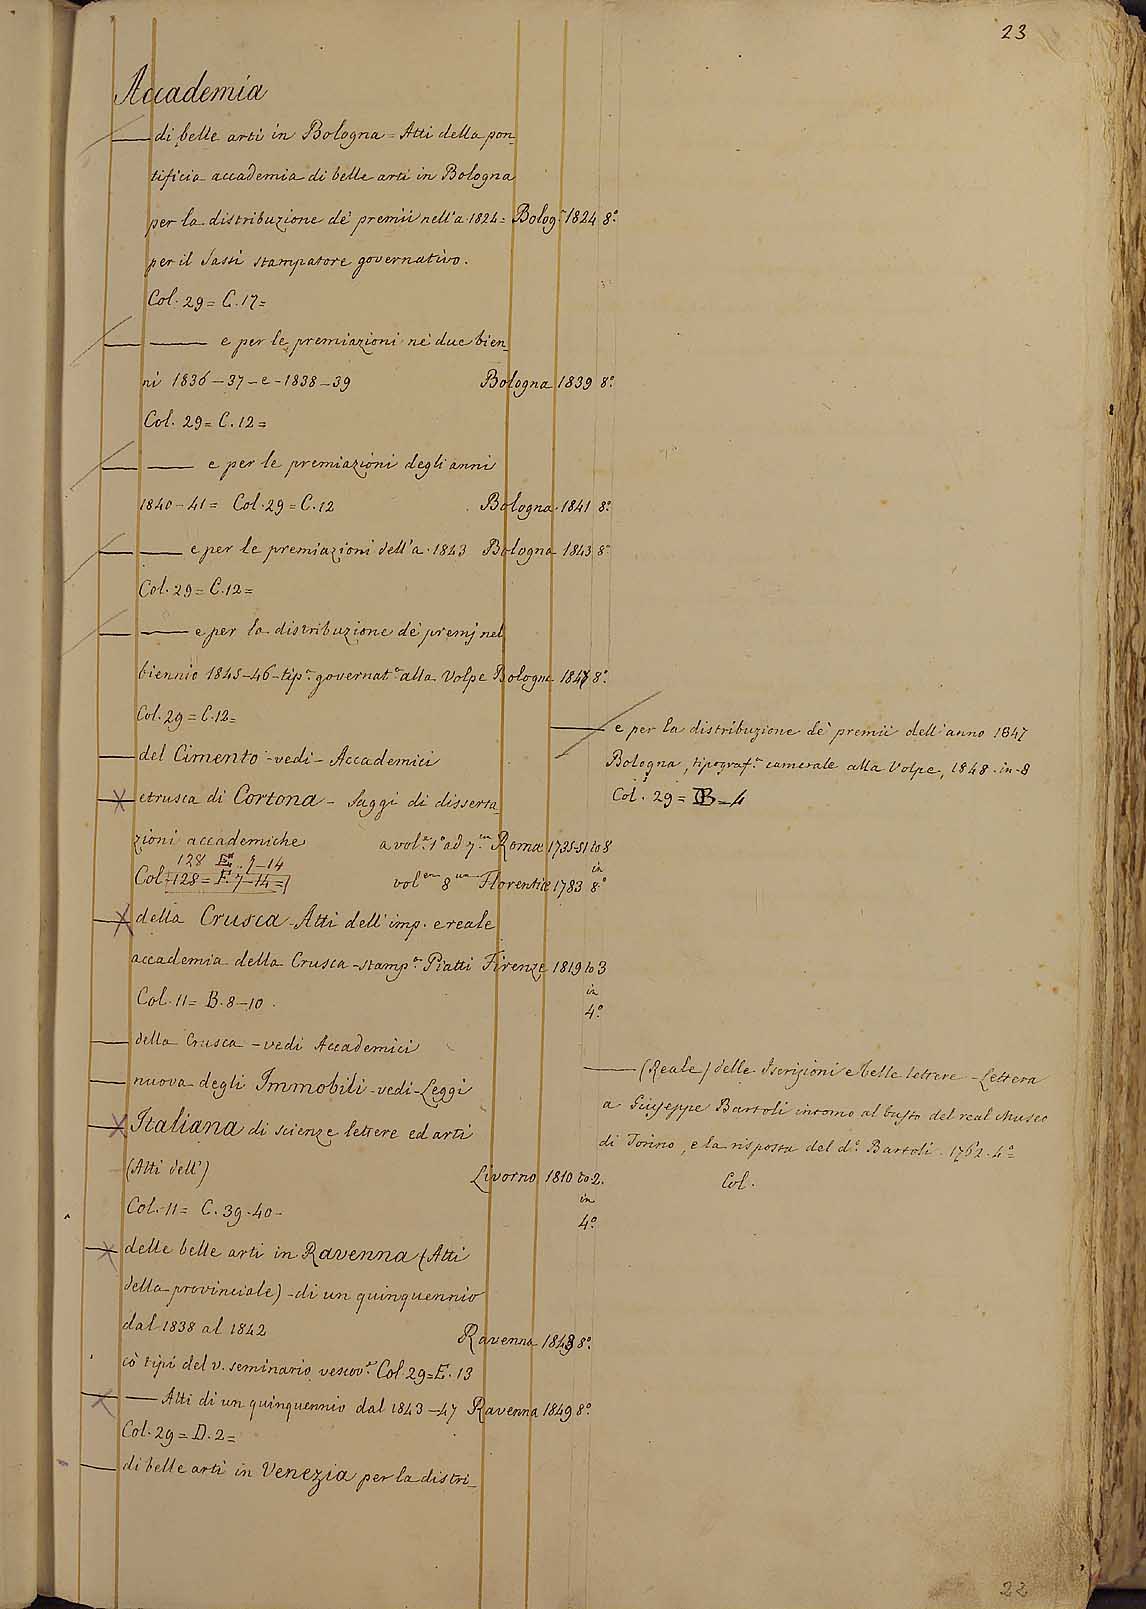 23
Accademia
— di belle arti in Bologna = Atti della pon-
tificia accademia di belle arti in Bologna
per la distribuzione de' premii nell'a. 1824 = Bolog.ª 1824 8.º
per il Sassi stampatore governativo.
Col. 29 = C. 17 =
— — e per le premiazioni ne' due bien-
ni 1836 — 37 — e — 1838 — 39 Bologna 1839 8.º
Col. 29 = C. 12 =
— — e per le premiazioni degli anni
1840 — 41 = Col. 29 = C. 12 Bologna 1841 8.º
— — e per le premiazioni dell'a. 1843 Bologna 1843 8.º
Col. 29 = C. 12 =
— — e per la distribuzione de' premj nel
biennio 1845-46 - tip.ª governat.ª alla Volpe Bologna 1847 8.º
Col. 29 = C. 12 =
— del Cimento - vedi - Accademici
— etrusca di Cortona - Saggi di disserta-
zioni accademiche a vol.e 1.º ad 7.um Romae 1735-51 to 8
128 E. 7-14 in
Col. 128 = F. 7-14 = vol.en 8.um Florentiae 1783 8.º
— della Crusca - Atti dell'imp. e reale
accademia della Crusca - stamp.ª Piatti Firenze 1819 to 3
Col. 11 = B. 8-10. in
4.º
— della Crusca - vedi Accademici
— nuova degli Immobili - vedi - Leggi
— Italiana di scienze lettere ed arti
(Atti dell') Livorno 1810 to 2.
Col. 11 = C. 39-40 - in
4.º
— delle belle arti in Ravenna (Atti
della provinciale) - di un quinquennio
dal 1838 al 1842 Ravenna 1843 8.º
co' tipi del v. seminario vescov.e Col. 29 = E. 13
— — Atti di un quinquennio dal 1843 - 47 Ravenna 1849 8.º
Col. 29 = D. 2 =
— di belle arti in Venezia per la distri-
— e per la distribuzione de' premii dell'anno 1847
Bologna, tipograf.ª camerale alla Volpe, 1848 - in - 8
Col. 29 = B - 4
— (Reale) delle Iscrizioni e belle lettere - Lettera
a Giuseppe Bartoli intorno al busto del real Museo
di Torino, e la risposta del d.º Bartoli. 1762. 4.º =
Col.
22